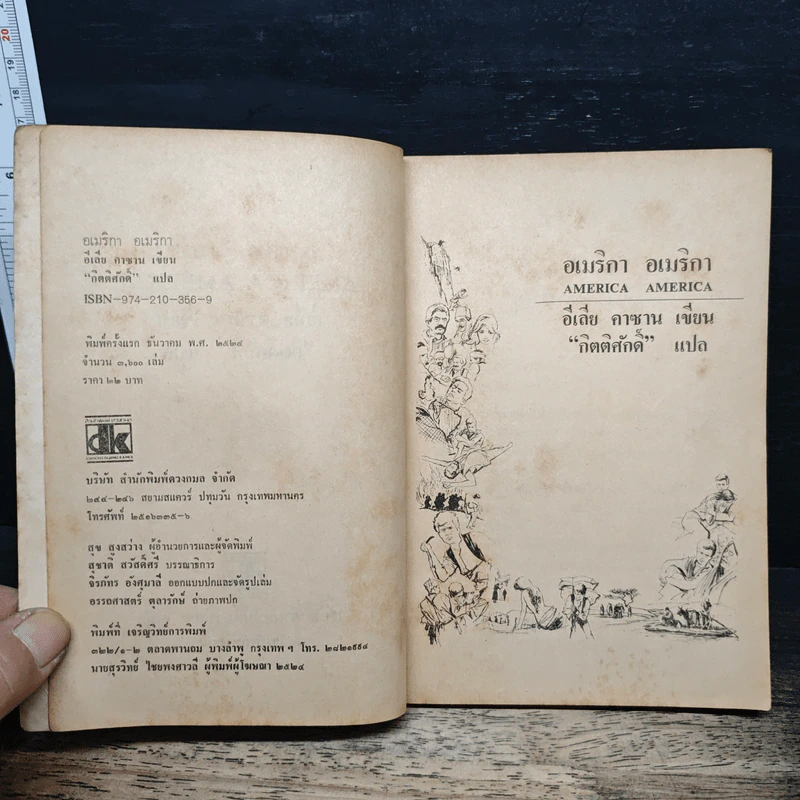 อเมริกา อเมริกา
อีเลีย คาซาน เขียน
“กิตติศักดิ์” แปล
ISBN-974-210-356-9
พิมพ์ครั้งแรก ธันวาคม พ.ศ. ๒๕๒๔
จำนวน ๓,๖๐๐ เล่ม
ราคา ๒๒ บาท
dk
บริษัท สำนักพิมพ์ดวงกมล จำกัด
๒๔๔-๒๔๖ สยามสแควร์ ปทุมวัน กรุงเทพมหานคร
โทรศัพท์ ๒๕๑๖๓๓๕-๖
สุข สูงสว่าง ผู้อำนวยการและผู้จัดพิมพ์
สุชาติ สวัสดิ์ศรี บรรณาธิการ
จิรภัทร อังศุมาลี ออกแบบปกและจัดรูปเล่ม
อรรถศาสตร์ ตุลารักษ์ ถ่ายภาพปก
พิมพ์ที่ เจริญวิทย์การพิมพ์
๓๒๒/๑-๒ ตลาดพานถม บางลำพู กรุงเทพ ฯ โทร. ๒๘๒๑๙๙๔
นายสุรวิทย์ ไชยพงศาวลี ผู้พิมพ์ผู้โฆษณา ๒๕๒๔
อเมริกา อเมริกา
AMERICA AMERICA
อีเลีย คาซาน เขียน
“กิตติศักดิ์” แปล
20
19
18
17
6